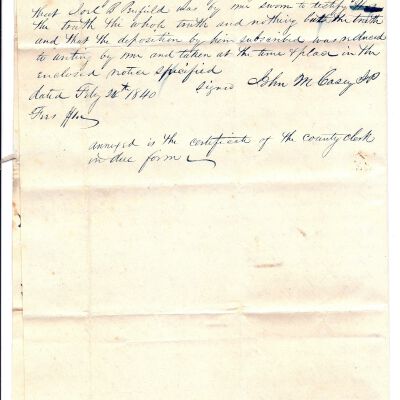 that Joel B Penfield was by me sworn to testify
the truth the whole truth and nothing but the truth
and that the deposition by him subscribed was reduced
to writing by me and taken at the time & place in the
enclosed notice specified
dated Feby 20th 1840 signed John M Casey JP
annexed is the certificate of the county clerk
in due form